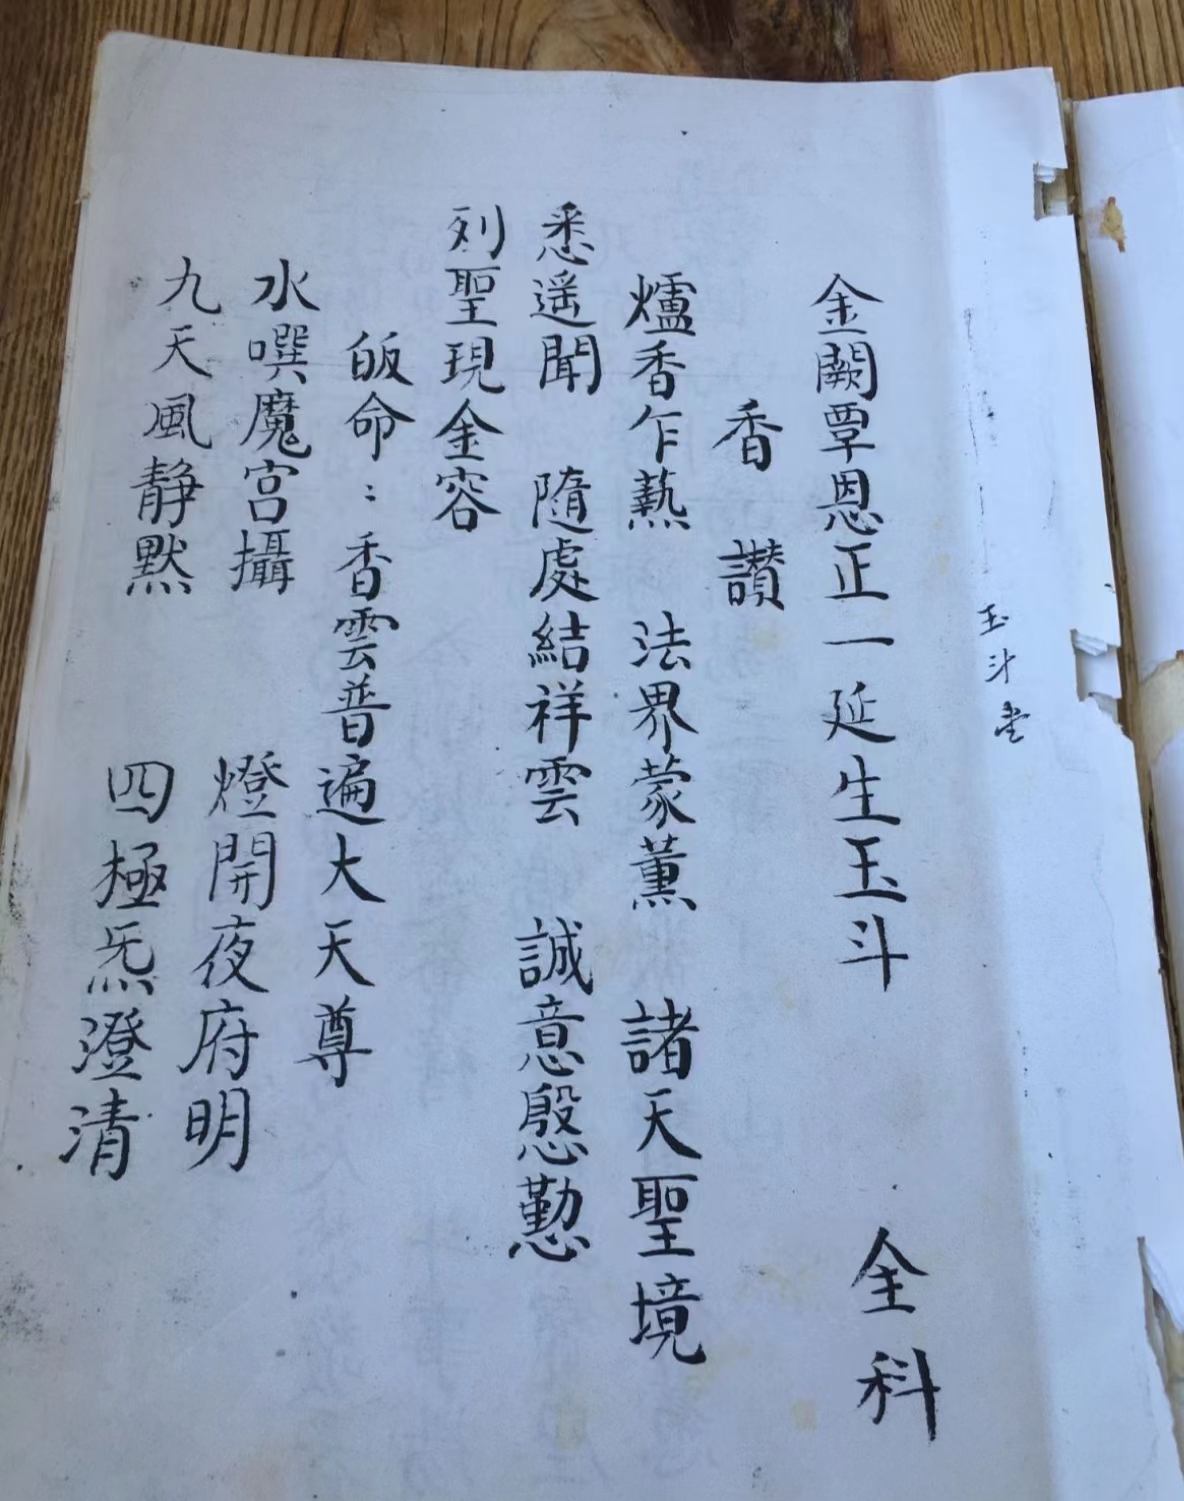 玉斗堂
金闕覃恩正一延生玉斗 全科
香讃
爐香乍爇 法界蒙薰 諸天聖境
悉遥聞 隨處結祥雲 誠意慇懃
列聖現金容
皈命：香雲普遍大天尊
水噀魔宮攝 燈開夜府明
九天風静默 四極炁澄清